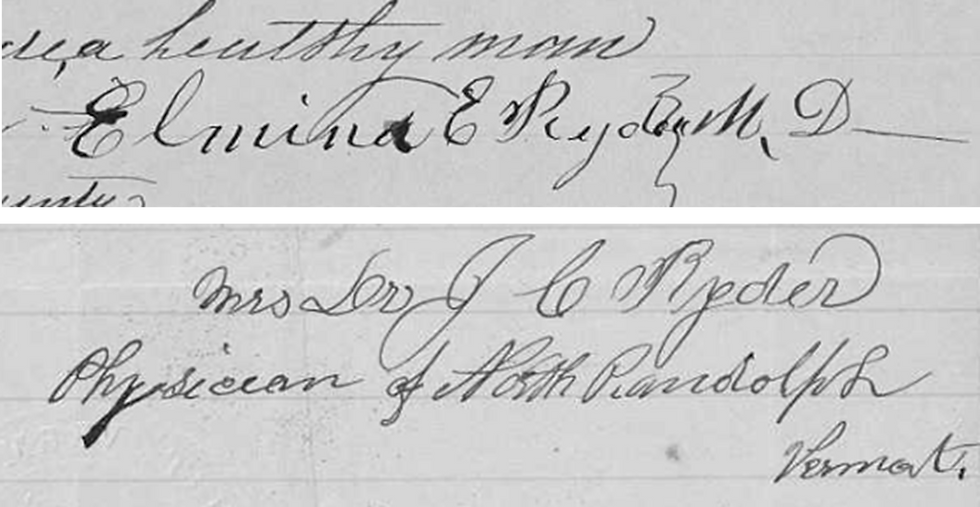 a healthy man
Elmina E Ryder M. D
Mrs Dr J C Ryder
Physiceean of North Randolph
Vermont.